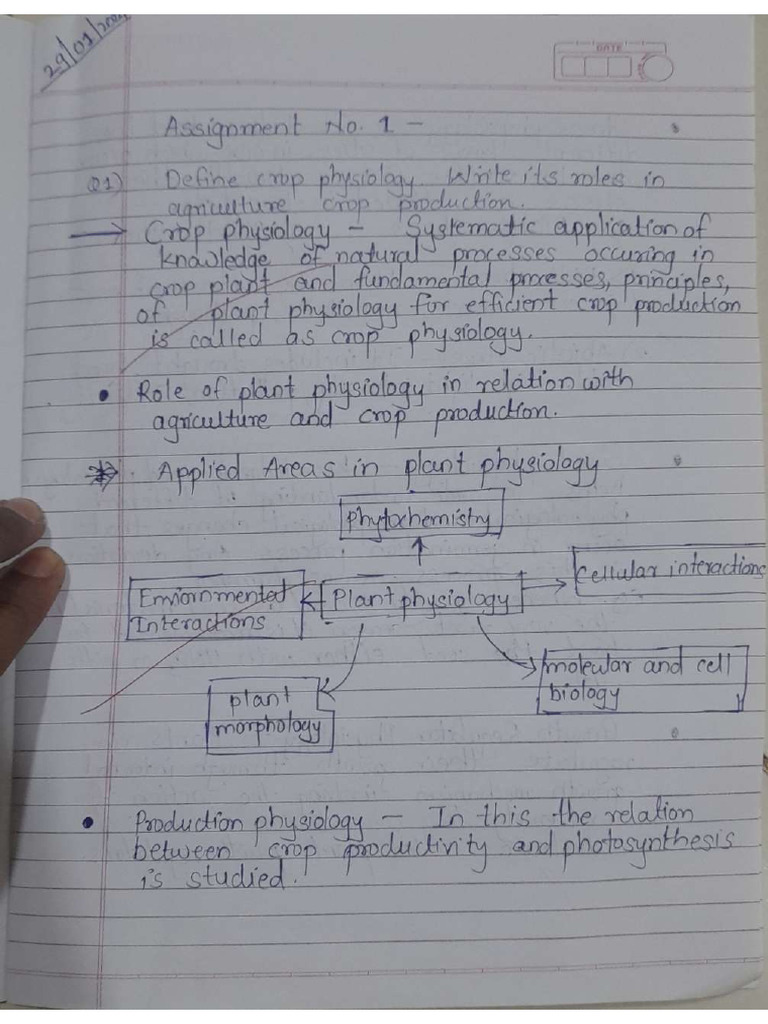 29/01/202
DATE
Assignment No. 1 -
Q1) Define crop physiology. Write its roles in
agriculture crop production.
→ Crop physiology - Systematic application of
knowledge of natural processes occuring in
crop plant and fundamental processes, principles,
of plant physiology for efficient crop production
is called as crop physiology.
• Role of plant physiology in relation with
agriculture and crop production.
Applied Areas in plant physiology
Phytochemistry
Cellular interactions
Enviornmental
Interactions
Plant physiology
molecular and cell
biology
plant
morphology
• Production physiology - In this the relation
between crop productivity and photosynthesis
is studied.